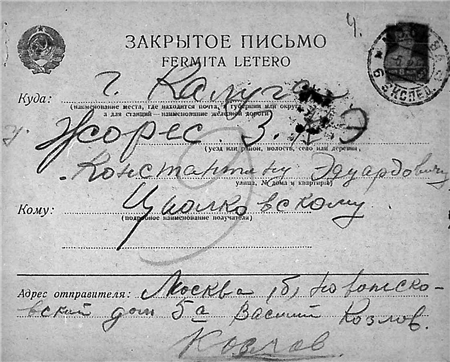 ч.
ЗАКРЫТОЕ ПИСЬМО
FERMITA LETERO
Куда: г. Калуга
(наименование места, где находится почта, и губернии или округа,
а для станций — наименование железной дороги)
у. Жорес 3.
(уезд или район, волость, село или деревня,
Константину Эдуардовичу
улица, № дома и квартиры)
Кому: Циолковскому.
(подробное наименование получателя)
Адрес отправителя: Москва, (6)
ский дом 5а Василий Козлов.
Козлов
ЭКСПЕД.